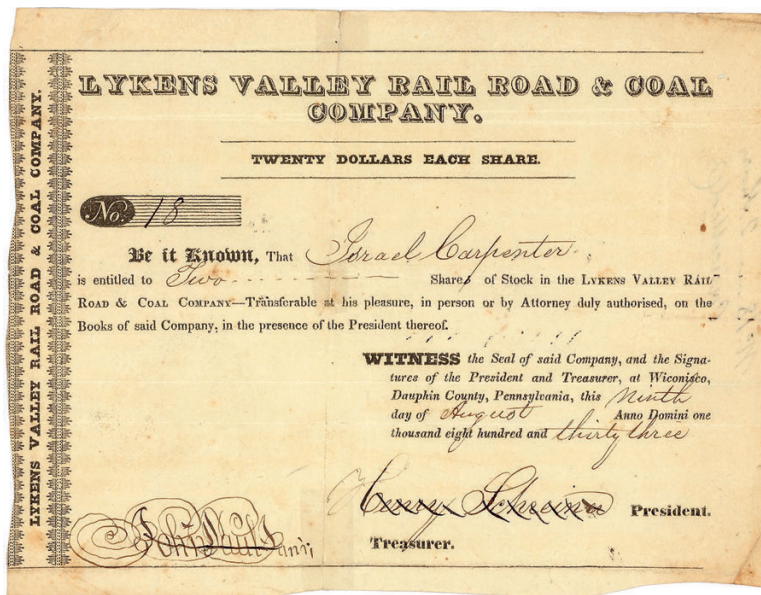 LYKENS VALLEY RAIL ROAD & COAL COMPANY.
LYKENS VALLEY RAIL ROAD & COAL
COMPANY.
TWENTY DOLLARS EACH SHARE.
No. 18
Be it Known, That Israel Carpenter
is entitled to Two Shares of Stock in the LYKENS VALLEY RAIL
ROAD & COAL COMPANY—Transferable at his pleasure, in person or by Attorney duly authorised, on the
Books of said Company, in the presence of the President thereof.
WITNESS the Seal of said Company, and the Signa-
tures of the President and Treasurer, at Wiconisco,
Dauphin County, Pennsylvania, this Ninth
day of August Anno Domini one
thousand eight hundred and thirty three
Henry Schreiner President.
John Paul Jun.
Treasurer.